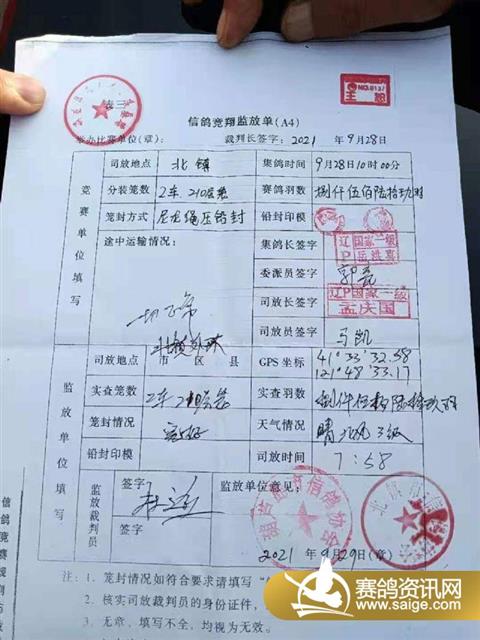 表三
NO.8137
信鸽竞翔监放单(A4)
举办比赛单位(章): 裁判长签字: 2021 年 9月28日
竞赛单位填写
司放地点 北镇 集鸽时间 9月28日10时00分
分装笼数 2车 210层笼 赛鸽羽数 捌仟伍佰陆拾玖羽
笼封方式 尼龙绳压铅封 铅封印模
途中运输情况: 集鸽长签字 辽P国家一级 岳洪喜
委派员签字
一切正常 司放长签字 辽P国家一级 孟庆国
司放员签字 马凯
监放单位填写
司放地点 市 区 县 GPS坐标 41°33'32.58
121°48'33.17
实查笼数 实查羽数 捌仟伍佰陆拾玖羽
笼封情况 完好 天气情况 晴 北风 3级
铅封印模 司放时间 7:58
监放裁判员 签字: 监放单位意见:
签字
2021 年 9月29日(章)
注: 1. 笼封情况如符合要求请填写“
2. 核实司放裁判员的身份证件,
3. 无章、填写不全、均视为无效。
信鸽竞赛规则
赛鸽资讯网
www.saige.com